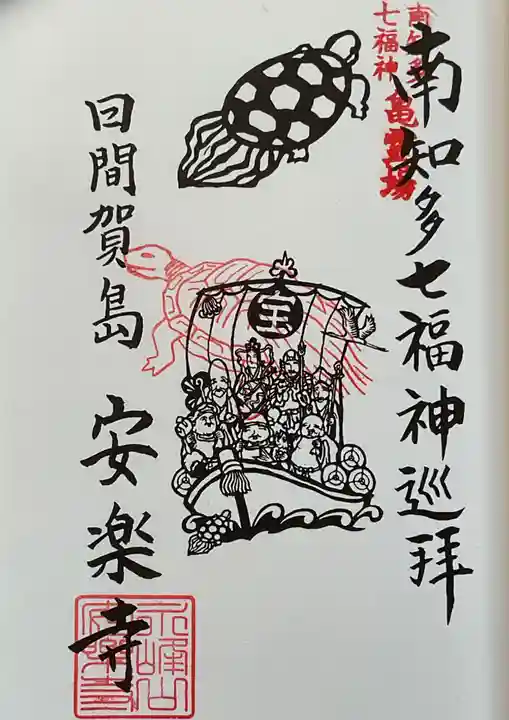 南知多
七福神
亀霊場
南知多七福神巡拝
宝
日間賀島 安楽寺
安楽寺